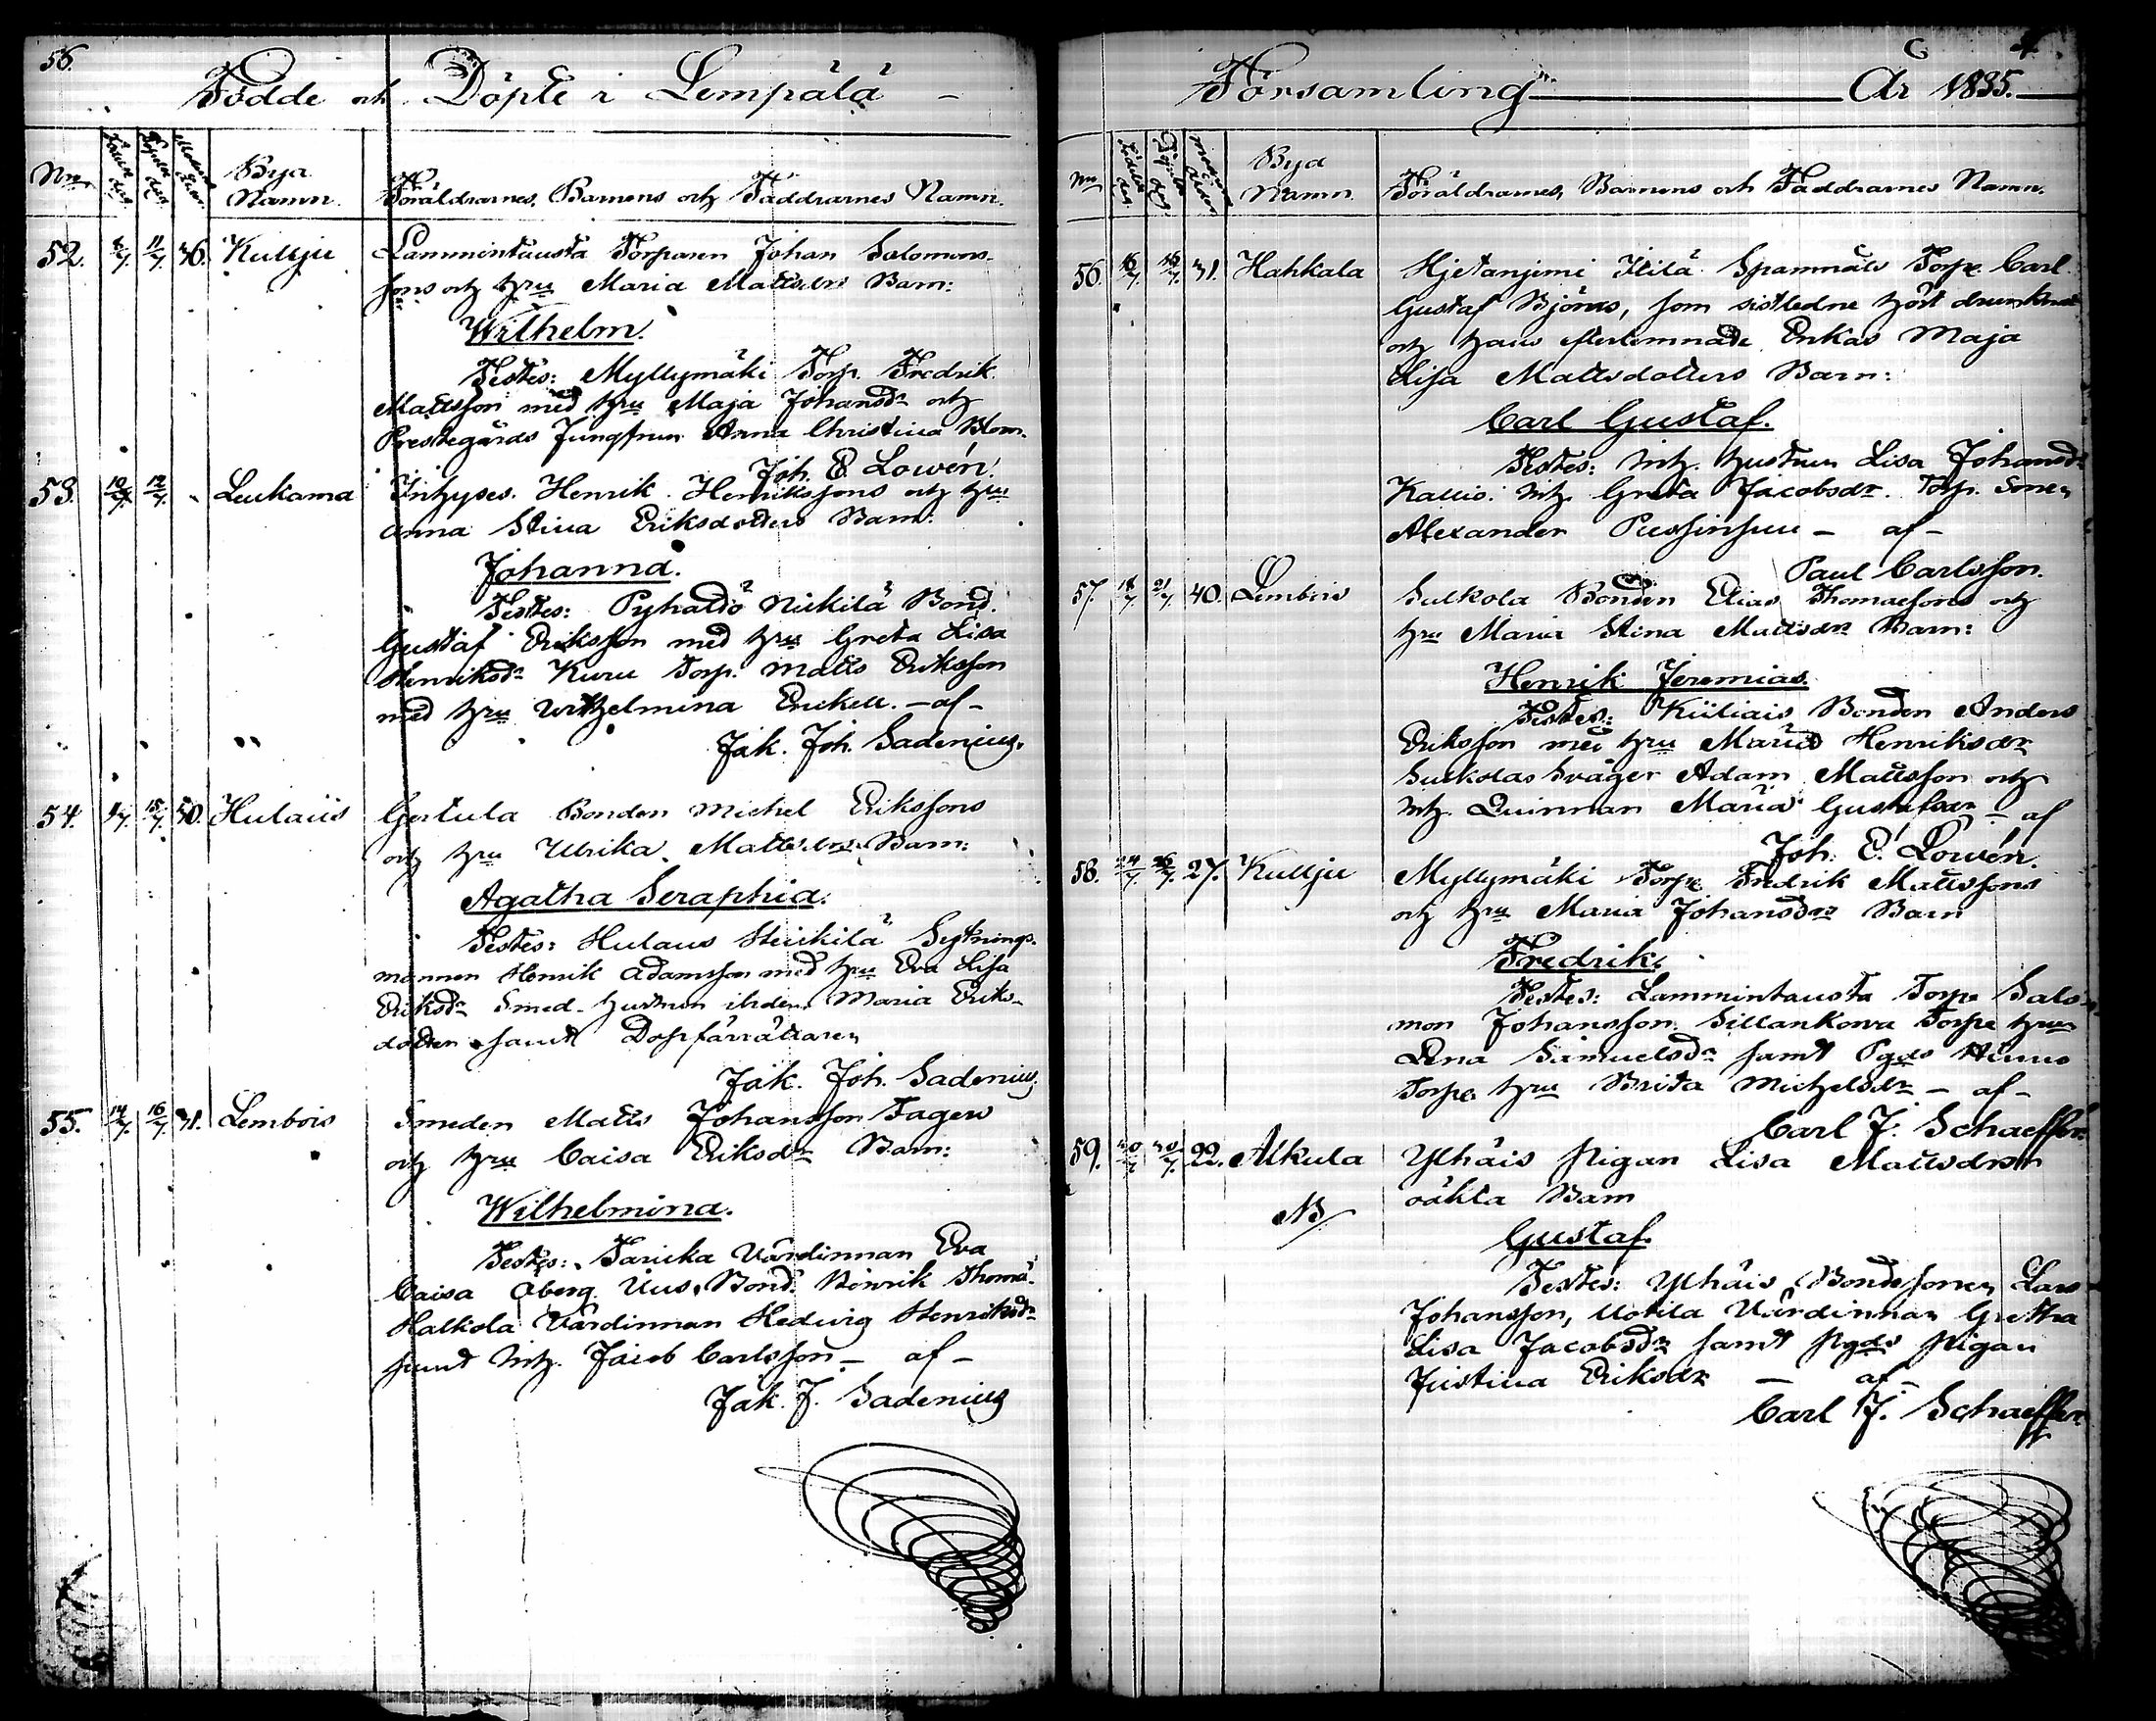 56.
Födde och Döpte i Lempälä
Nro Bya Namn. Föräldrarnes, Barnens och Faddrarnes Namn.
52. 11/7. 36. Kulju Lammintausta Torparen Johan Salomons-
sons och hru Maria Mattsdrs Barn:
Wilhelm.
Testes: Myllymäki Torp. Fredrik
Mattsson med hru Maja Johansdr och
Prestegårds Jungfrun Anna Christina Blom.
Joh. E. Lowén.
53. 10/7. 12/7. Leukama Inhyses. Henrik Henrikssons och hru
Anna Stina Eriksdotters Barn:
Johanna.
Testes: Pyhaldö Nickilä Bond.
Gustaf Eriksson med hru Greta Lisa
Henriksdr Kuru Torp. Matts Eriksson
med hru Wilhelmina Enckell. - af -
Jak. Joh. Sadenius.
54. 15/7. 30. Hulaus Gertula Bonden Michel Erikssons
och hru Ulrika Mattsdrs Barn:
Agatha Seraphia.
Testes: Hulaus Heickilä Sytnings-
mannen Henrik Adamsson med hru Eva Lisa
Eriksdr Smed-hustrun Maria Eriks-
dotter samt Dopförrättaren
Jak. Joh. Sadenius.
55. 14/7. 16/7. 31. Lembois Smeden Matts Johansson Fagers
och hru Caisa Eriksdr Barn:
Wilhelmina.
Testes: Värdinnan Eva
Caisa Öberg. Uus. Bond. Henrik Thomæ.
Halkola Värdinnan Hedwig Henriksdr
samt Inh. Jacob Carlsson - af -
Jak. J. Sadenius
Församling År 1835.
Nro Födelse dag. Döpelse dag. Modrens ålder Bya Namn. Föräldrarnes, Barnens och Faddrarnes Namn.
56. 16/7. 16/7. 31. Hahkala Hjetaniemi Spannmåls Torp. Carl
Gustaf Björns, som sistledne höst drunknat
och hans efterlemnade Enkas Maja
Lisa Mattsdotters Barn:
Carl Gustaf.
Testes: Inh. hustrun Lisa Johansdr
Kallio. Inh. Greta Jacobsdr. Torp. Sonen
Alexander - af -
Paul Carlsson.
57. 18/7. 21/7. 40. Lembois Sulkola Bonden Elias Thomaesons och
hru Maria Stina Mattsdrs Barn:
Henrik Jeremias.
Testes: Bonden Anders
Eriksson med hru Maria Henriksdr
Sulkolas Svåger Adam Mattsson och
Inh. Quinnan Maria Gustafsdr - af
Joh. E. Lowén.
58. 24/7. 26/7. 27. Kulju Myllymäki Torp. Fredrik Mattssons
och hru Maria Johansdrs Barn
Fredrik.
Testes: Lammintausta Torp. Salo-
mon Johansson. Sillankorva Torp. hrun
Lena Samuelsdr samt Pgds
Torp. hru Brita Michelsdr - af -
Carl J. Schaeffer.
59. 30/7. 30/7. 22. Alkula Ylhäis Pigan Lisa Mattsdrs
NB oäkta Barn
Gustaf.
Testes: Ylhäis Bondesonen Lars
Johansson, Uotila Värdinnan Gretha
Lisa Jacobsdr samt Pgds Pigan
Justina Eriksdr - af -
Carl J. Schaeffer.